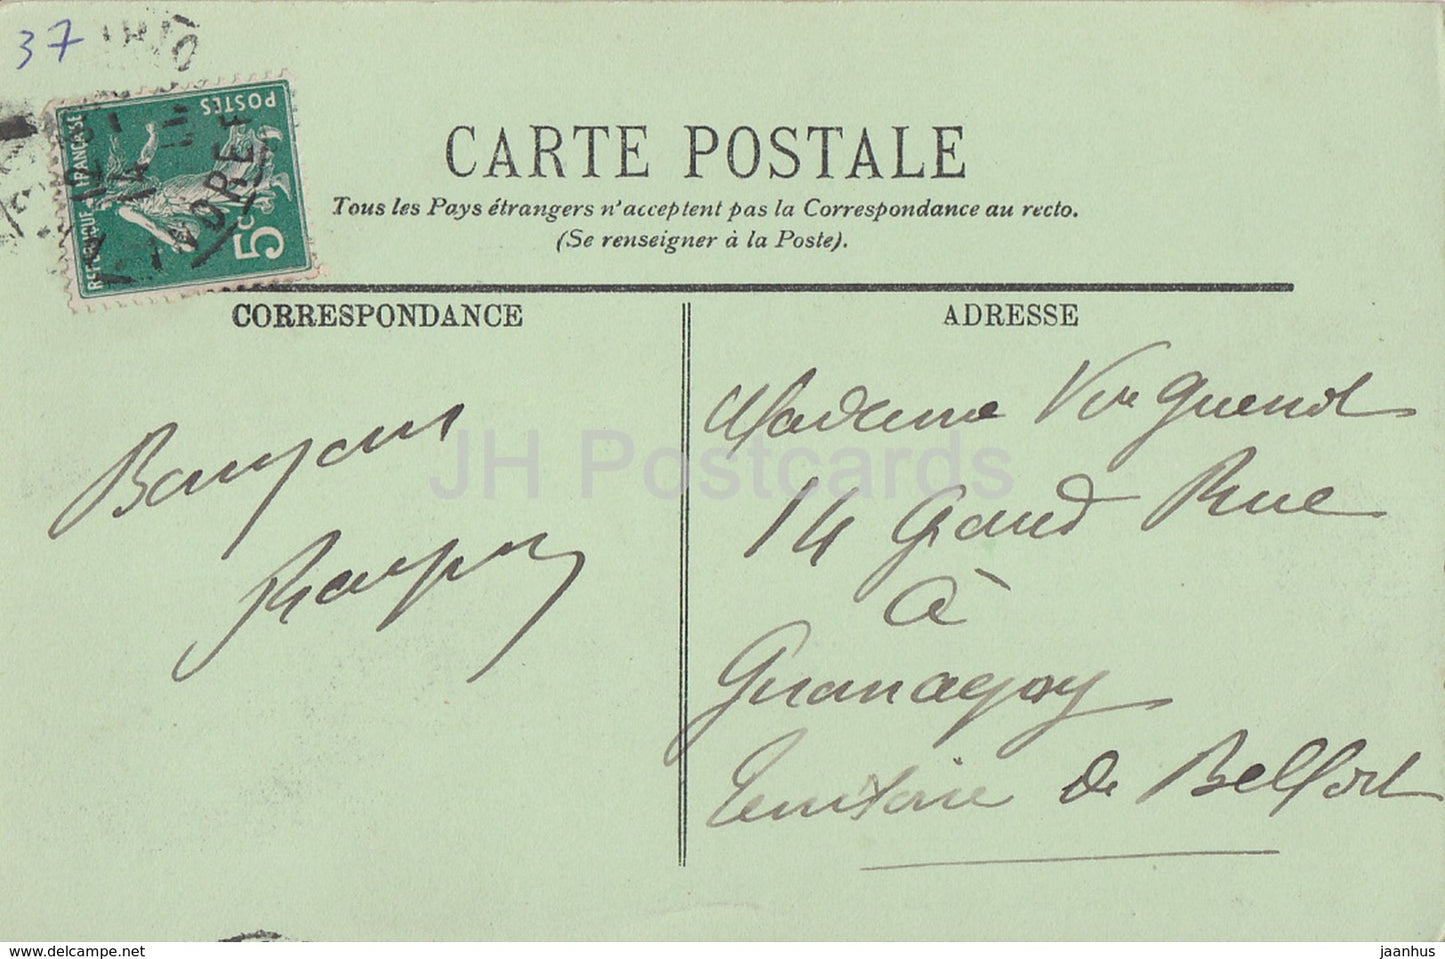 37
POSTES
REPUBLIQUE FRANÇAISE
5c
12
14
CARTE POSTALE
Tous les Pays étrangers n'acceptent pas la Correspondance au recto.
(Se renseigner à la Poste).
CORRESPONDANCE
ADRESSE
Madame Vve
14 Grand Rue
à
Territoire de Belfort
JH Postcards
hippostcard.com/store/jaanhus
jaanhus